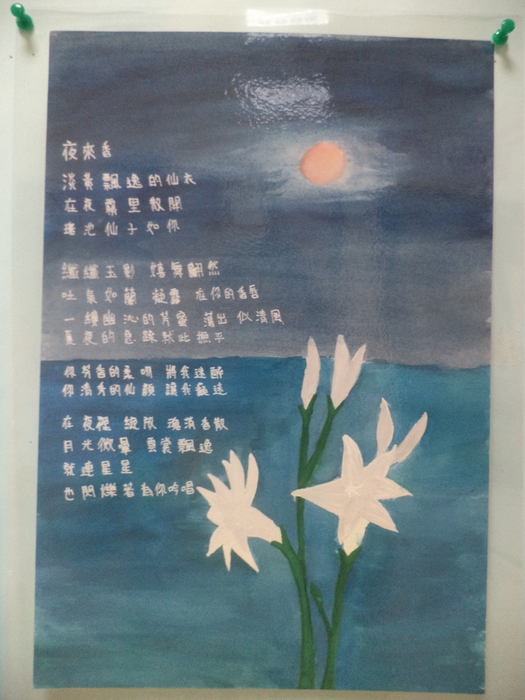 夜來香
淡黃飄逸的仙衣
在夜霧里散開
瑤池仙子如你
纖纖玉影 嬉舞翩然
吐氣如蘭 凝露 在你的香唇
一縷幽沁的芳蜜 蕩出 似清風
夏夜的急躁就此撫平
你芳香的柔吻 將我迷醉
你清秀的仙顏 讓我痴迷
在夜裡 綻放 瑰消香散
月光微暈 雲裳飄逸
就連星星
也閃爍著為你吟唱